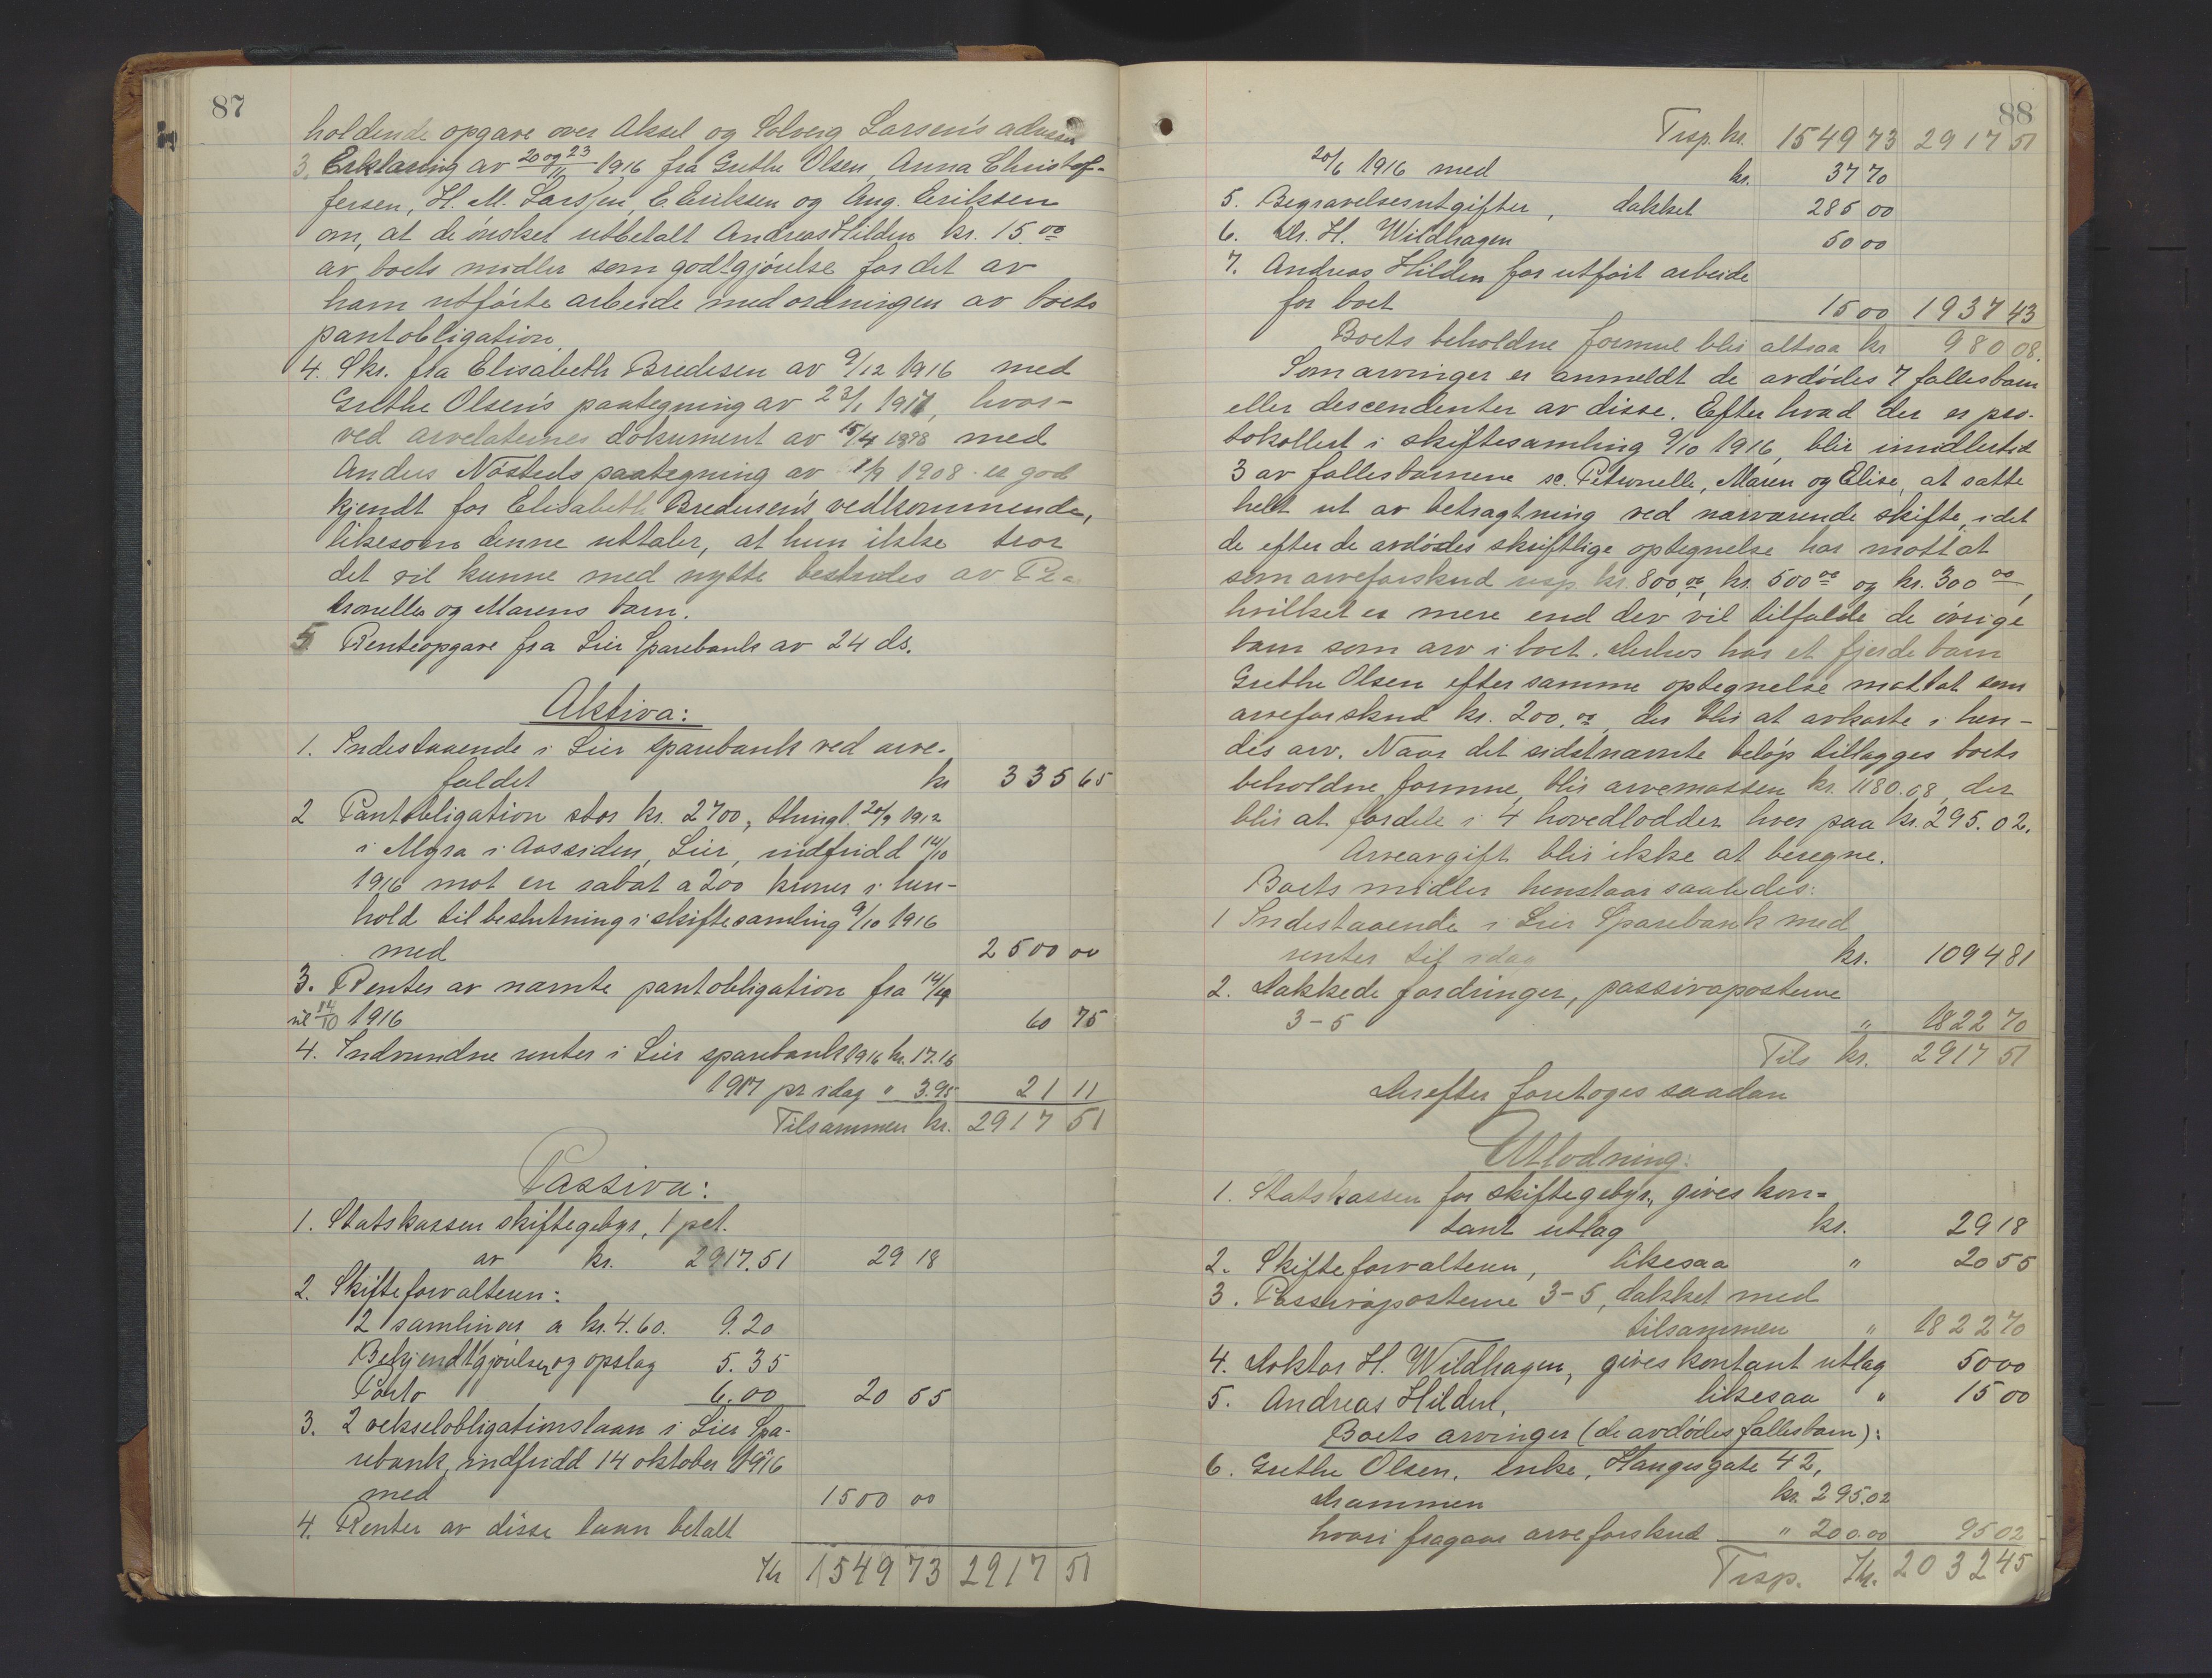 87
holdende opgave over Aksel og Solveig Larsen's adresse
3. Erklæring av 20 og 23/11 1916 fra Grethe Olsen, Anna Christof-
fersen, H. M. Larsen, E Eriksen og Aug. Eriksen
om, at de ønsker utbetalt Andreas Hilden kr. 15.00
av boets midler som godtgjørelse for det av
ham utførte arbeide med ordningen av boets
pantobligation.
4. Skr. fra Elisabeth Bredesen av 9/12 1916 med
Grethe Olsen's paategning av 23/1 1917, hvor-
ved arvelaternes dokument av 15/4 1898 med
Anders Nøsteds paategning av 1/9 1908 er god
kjendt for Elisabeth Bredesen's vedkommende,
likesom denne uttaler, at hun ikke tror
det vil kunne med nytte bestrides av Pe
tronelles og Marens barn.
5 Renteopgave fra Lier Sparebank av 24 ds.
Aktiva:
1. Indestaaende i Lier sparebank ved arve-
faldet kr 335 65
2 Pantobligation stor kr. 2700, thingl. 20/9 1912
i Myra i Aassiden, Lier, indfridd 14/10
1916 mot en rabat a 200 kroner i hen-
hold til beslutning i skiftesamling 9/10 1916
med 2500 00
3. Renter av nævnte pantobligation fra 14/4
til 14/10 1916 60 75
4. Indvundne renter i Lier sparebank 1916 kr. 17.16
1917 pr idag " 3.95 21 11
Tilsammen kr. 2917 51
Passiva:
1. Statskassen skiftegebyr, 1 pct.
av kr. 2917.51 29 18
2. Skifteforvalteren:
2 samlinger a kr. 4.60. 9.20
Bekjendtgjørelser og opslag 5.35
Porto 6.00 20 55
3. 2 vekselobligationslaan i Lier Spa-
rebank, indfridd 14 oktober 1916
med 1500 00
4. Renter av disse laan betalt
Kr 1549 73 2917 51
88
Trsp. kr. 1549 73 2917 51
20/6 1916 med kr. 37 70
5. Begravelsesutgifter, dækket 285 00
6. Dr. H. Wildhagen 50 00
7. Andreas Hilden for utført arbeide
for boet 15 00 1937 43
Boets beholdne formue blir altsaa kr 980 08.
Som arvinger er anmeldt de avdødes 7 fællesbarn
eller descendenter av disse. Efter hvad der er pro-
tokollert i skiftesamling 9/10 1916, blir imidlertid
3 av fællesbarnene sc. Petronelle, Maren og Elise, at sætte
helt ut av betragtning ved nærværende skifte, idet
de efter de avdødes skriftlige optegnelse har mottat
som arveforskud resp. kr. 800,00, kr. 500 00 og kr. 300 00,
hvilket er mere end der vil tilfalde de øvrige
barn som arv i boet. Derhos har et fjerde barn
Grethe Olsen efter samme optegnelse mottat som
arveforskud kr. 200,00, der blir at avkorte i hen-
des arv. Naar det sidstnævnte beløp tillægges boets
beholdne formue, blir arvemassen kr. 1180.08, der
blir at fordele i 4 hovedlodder hver paa kr. 295.02.
Arveavgift blir ikke at beregne.
Boets midler henstaar saaledes:
1 Indestaaende i Lier Sparebank med
renter til idag kr. 1094 81
2. Dækkede fordringer, passivaposterne
3-5 " 1822 70
Tils kr. 2917 51
Derefter foretoges saadan
Utlodning:
1. Statskassen for skiftegebyr, gives kon=
tant utlæg kr. 29 18
2. Skifteforvalteren, likesaa " 20 55
3. Passivaposterne 3-5, dækket med
tilsammen " 1822 70
4. Doktor H. Wildhagen, gives kontant utlæg 50 00
5. Andreas Hilden, likesaa " 15 00
Boets arvinger (de avdødes fællesbarn):
6. Grethe Olsen, enke, Haugesgate 42,
Drammen kr. 295.02
hvori fragaar arveforskud " 200.00 95 02
Trsp. Kr. 2032 45